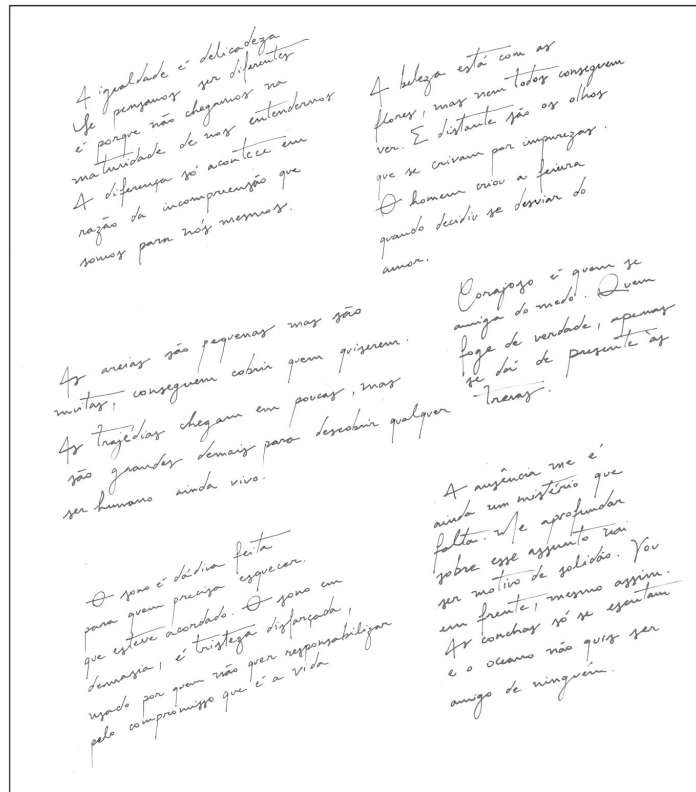 A igualdade é delicadeza
Se pensamos ser diferentes
é porque não chegamos na
maturidade de nos entendermos
A diferença só acontece em
razão da incompreensão que
somos para nós mesmos.
A beleza está com as
flores, mas nem todos conseguem
ver. E distante são os olhos
que se crivam por impurezas.
O homem criou a feiura
quando decidiu se desviar do
amor.
As areias são pequenas mas são
muitas, conseguem cobrir quem quiserem.
As trajédias chegam em poucas, mas
são grandes demais para descobrir qualquer
ser humano ainda vivo.
Corajoso é quem se
amiga do medo. Quem
foge de verdade, apenas
se dá de presente às
trevas.
O sono é dádiva feita
para quem precisa esquecer
que esteve acordado. O sono em
demasia, é tristeza disfarçada,
usado por quem não quer responsabilizar
pelo compromisso que é a vida
A ausência me é
ainda um mistério que
falta. Me aprofundar
sobre esse assunto vai
ser motivo de solidão. Vou
em frente, mesmo assim.
As conchas só se escutam
e o oceano não quis ser
amigo de ninguém.